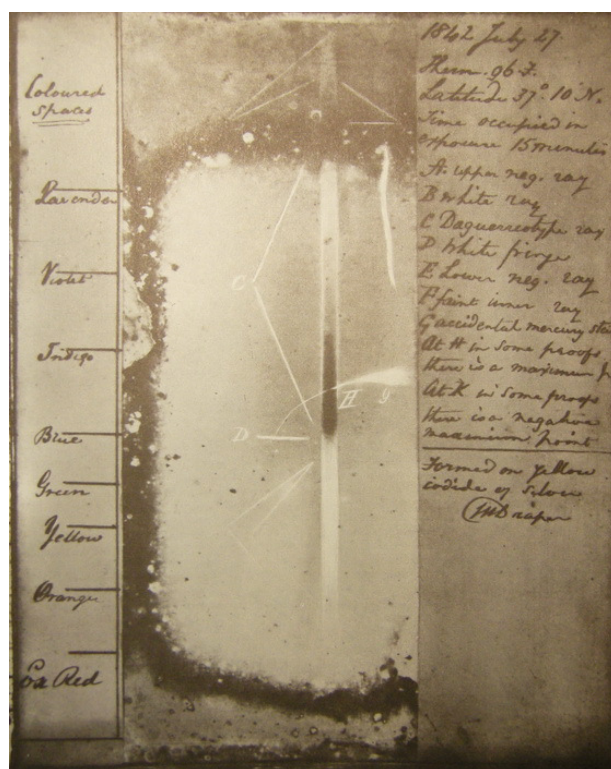 Coloured
spaces
Lavender
Violet
Indigo
Blue
Green
Yellow
Orange
Ex Red
C
D
H
g
1842 July 27
Therm. 96 F.
Latitude 37° 10' N.
Time occupied in
exposure 15 minutes
A. upper neg. ray
B White ray
C Daguerreotype ray
D White fringe
E Lower neg. ray
F faint inner ray
G accidental mercury
At H in some proofs
there is a maximum
At K in some proofs
there is a negative
maximum point
Formed on yellow
iodide of silver
JWDraper